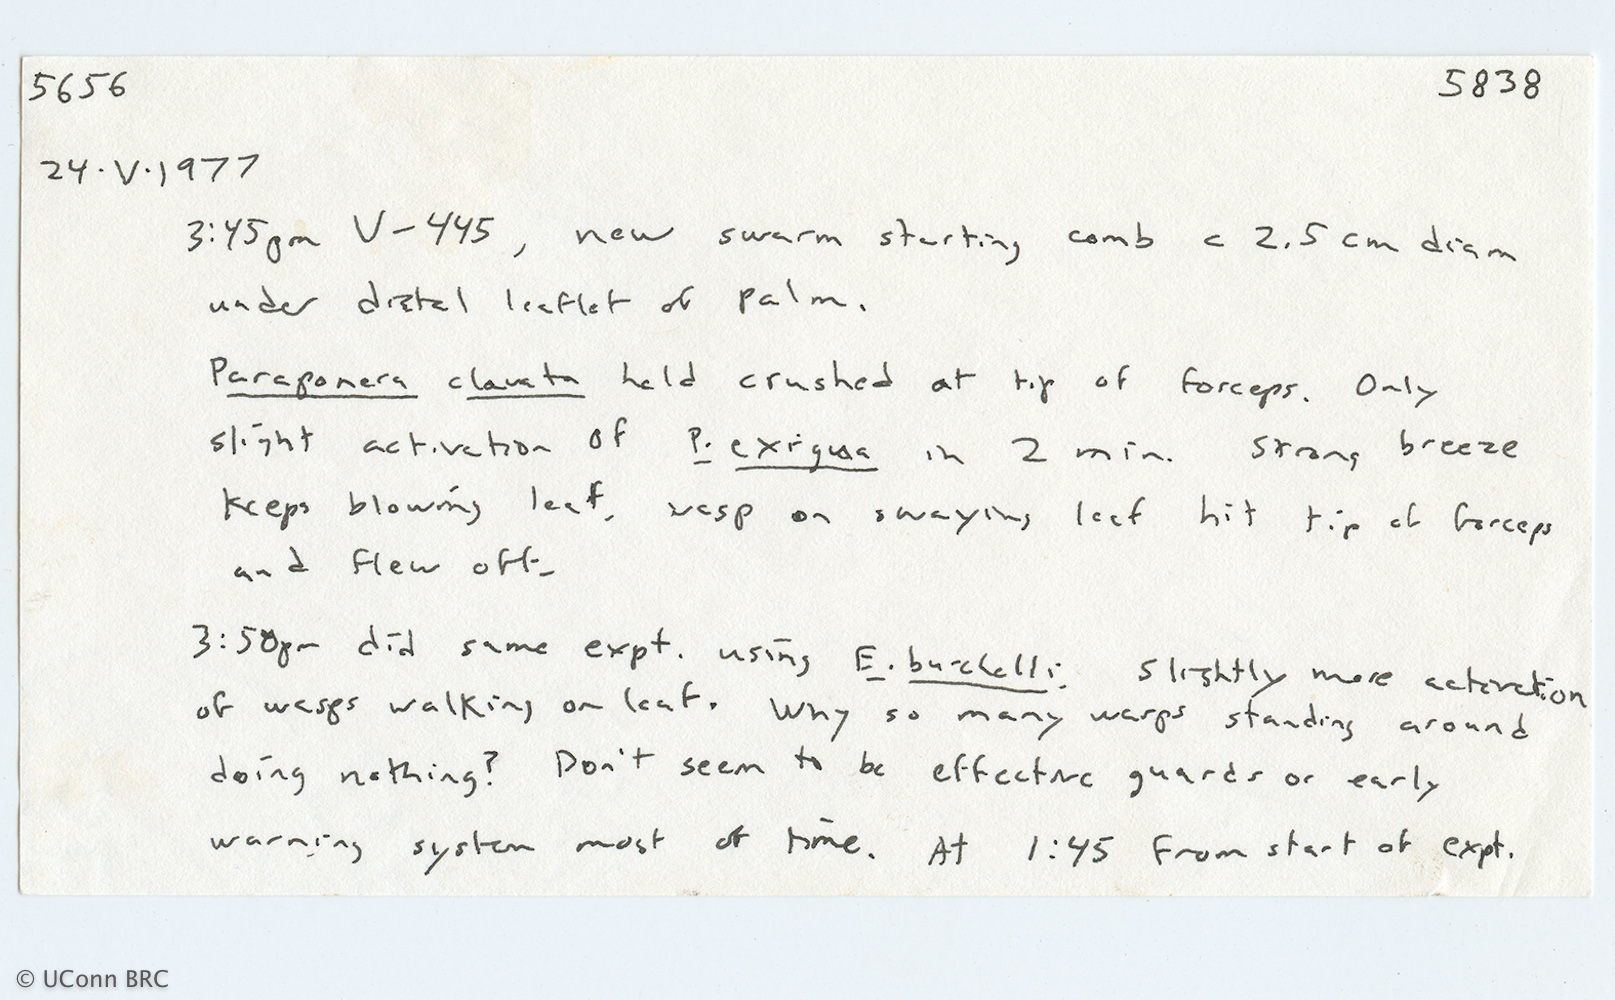 5656 5838
24.V.1977
3:45pm V-445, new swarm starting comb c 2.5 cm diam
under distal leaflet of palm.
Paraponera clavata held crushed at tip of forceps. Only
slight activation of P. exigua in 2 min. Strong breeze
keeps blowing leaf, wasp on swaying leaf hit tip of forceps
and flew off.
3:50pm did same expt. using E. burchelli. Slightly more activation
of wasps walking on leaf. Why so many wasps standing around
doing nothing? Don't seem to be effective guards or early
warning system most of time. At 1:45 from start of expt.
© UConn BRC